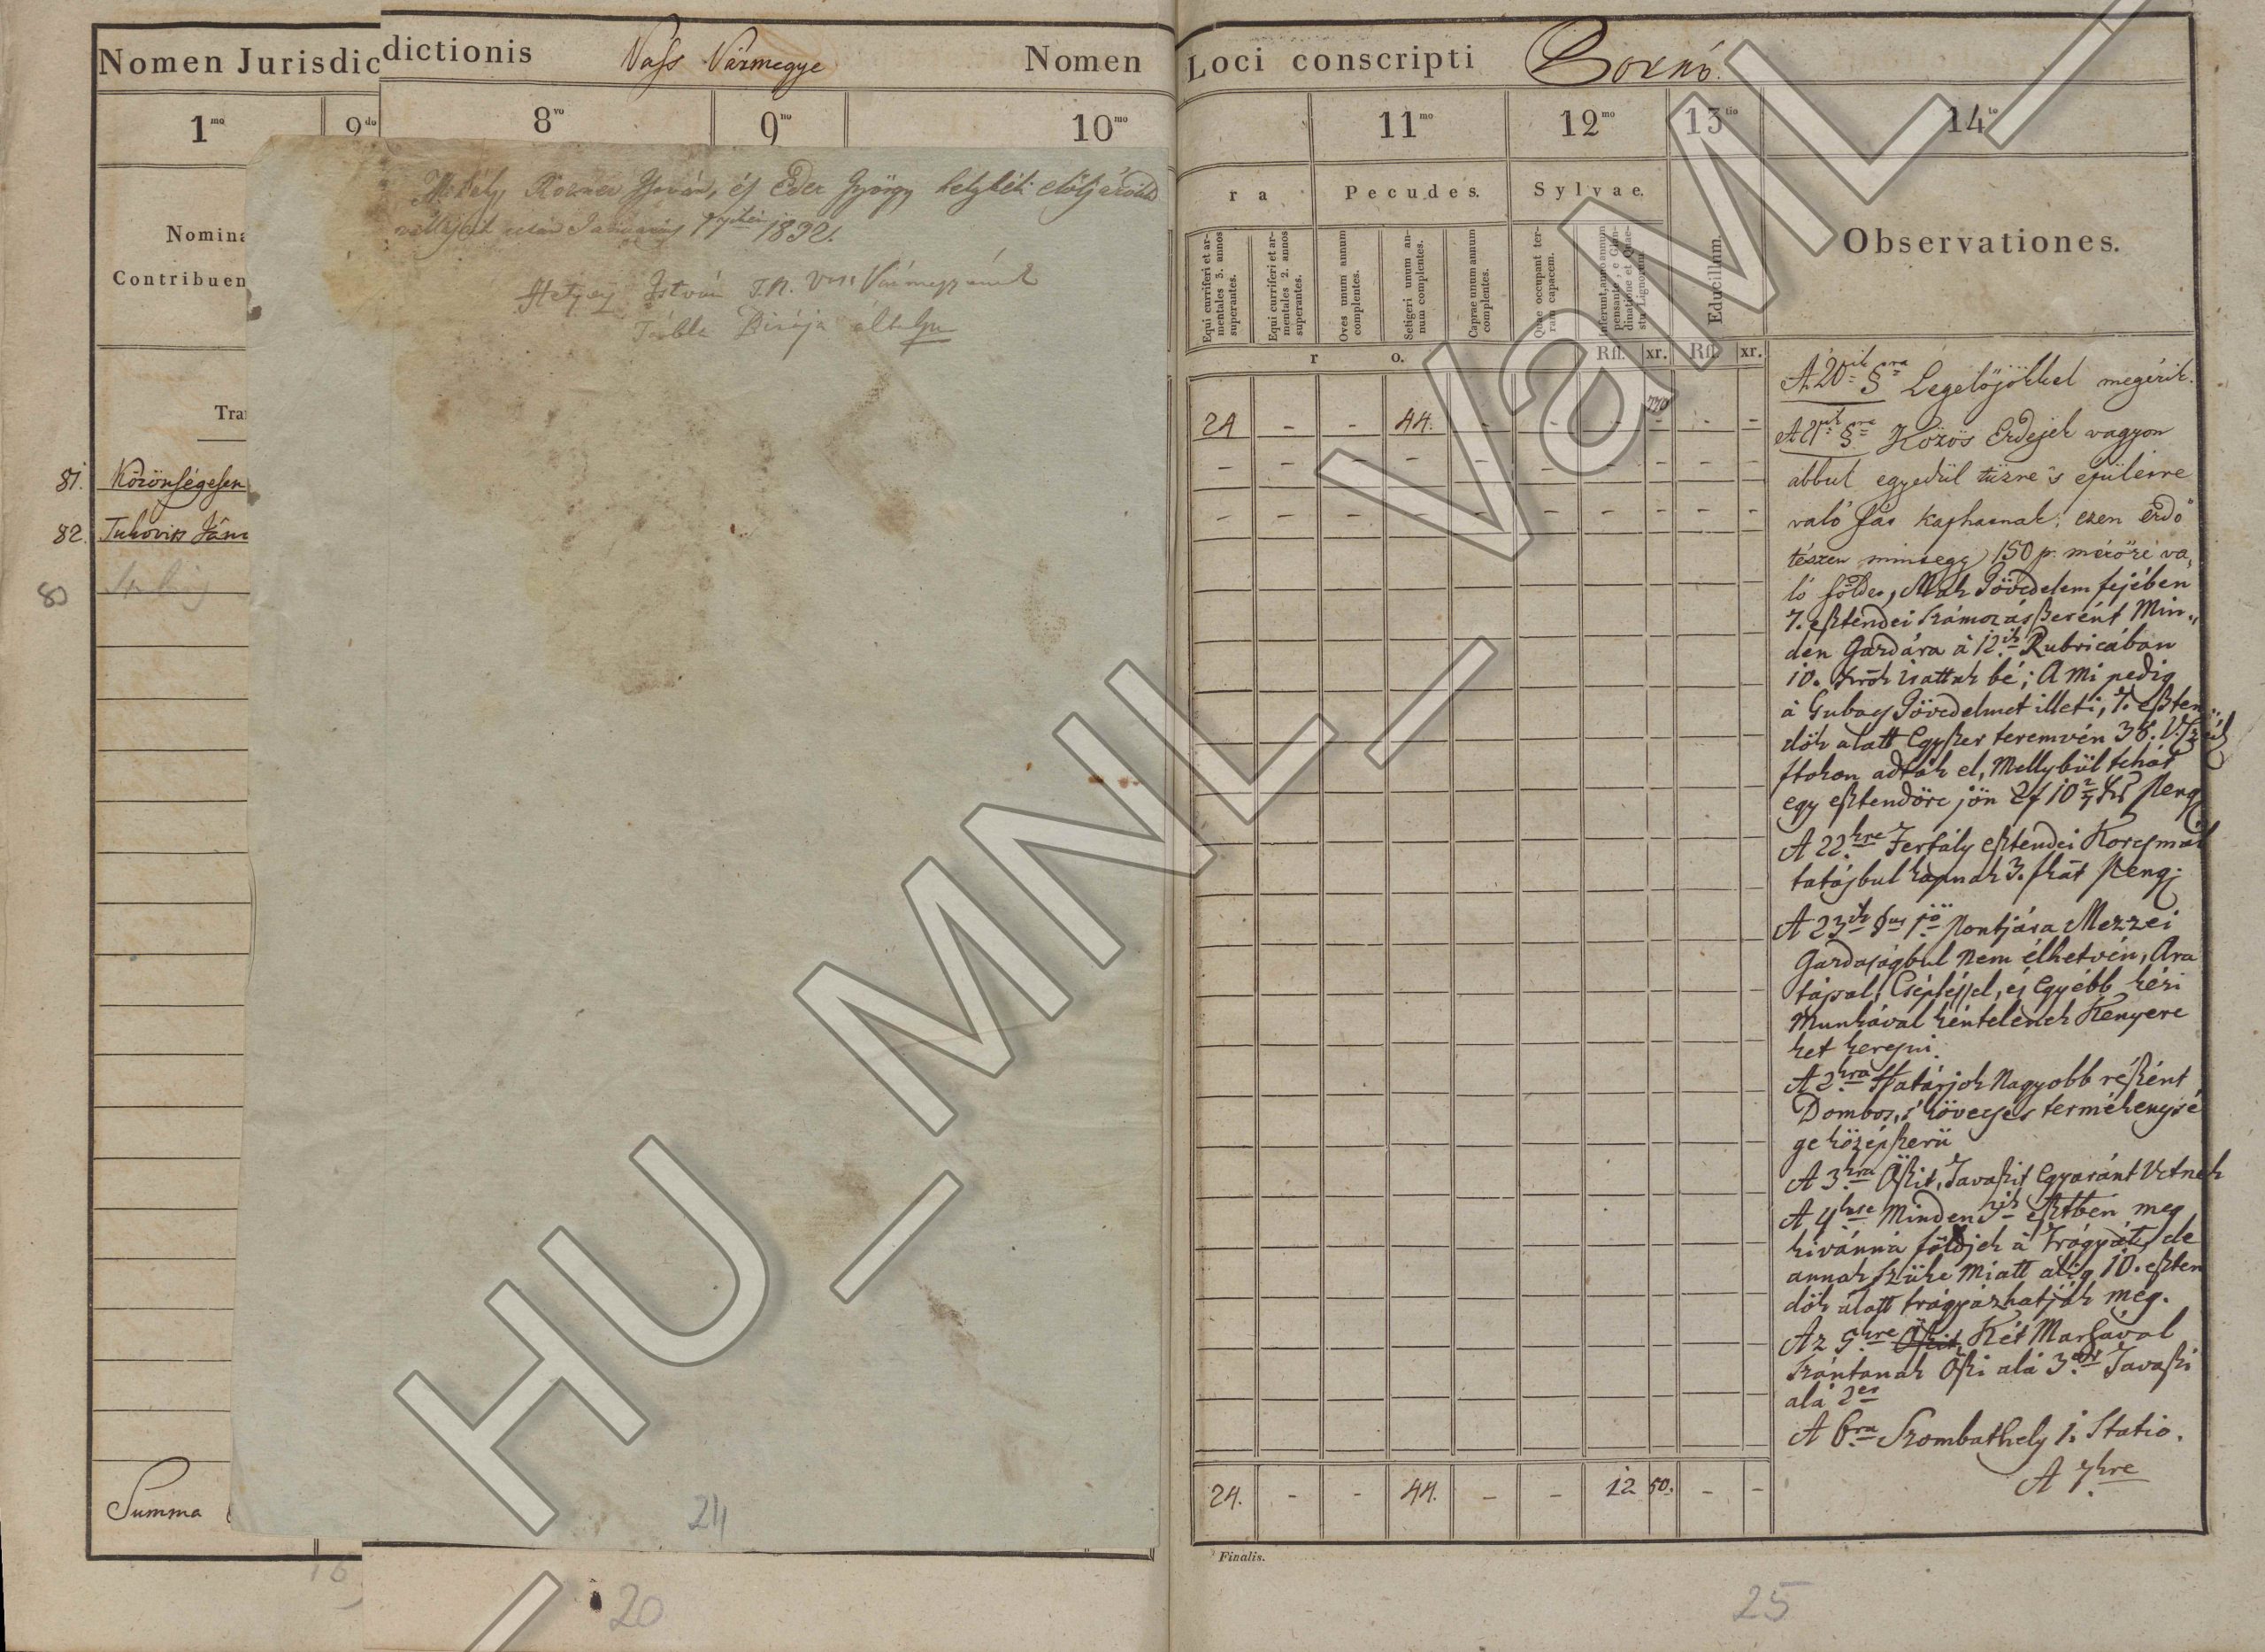 Nomen Jurisdic
dictionis Vass Vármegye Nomen
Loci conscripti
1mo
8vo 9no 10mo
11mo 12mo 13tio 14to
Nomina
Contribuen
Tra
81. Közönségesen
82.
83
Summa
István, és Eder György helybéli
1832.
Hetyey István T. N. Vas Vármegyének
Tábla Birája által
24
20
r a
Pecudes.
Sylvae.
Educillum.
Observationes.
Equi curriferi et armentales 3. annos superantes.
Equi curriferi et armentales 2. annos superantes.
Oves unum annum complentes.
Setigeri unum annum complentes.
Caprae unum annum complentes.
Quae occupant terram capacem.
r o. Rfl. xr. Rfl. xr.
24 - - 44. - - - - - -
24. - - 44. - - 12 50. - -
Finalis.
25
A 20ik §ra Legelőjökkel megérik.
A 21ik §ra Közös Erdejek vagyon
abbul egyedül tüzre s épületre
való fát kaphatnak; ezen erdő
tészen mintegy 150 p. mérőre va,
ló földet, Mak Jövedelem fejében
7. esztendei Számozás szerént Min,,
den Gazdára a 12ik Rubricában
10. xrok irattak bé; A mi pedig
a Gubats Jövedelmet illeti, 7. eszten,,
dők alatt Egyszer teremvén 38.
ftokon adták el, Mellybül tehát
egy esztendőre jön
A 22kre Fertály esztendei Korcsmál
tatásbul kapnak 3. fkat
A 23ik §us 1ső Pontjára Mezzei
Gazdaságbul Nem élhetvén, Ara
tással, Csépléssel, és Egyébb kézi
Munkával kéntelenek Kenyere
ket keresni.
A 2kra Határjok Nagyobb részént
Dombos, s kövecses termékenysé
ge középszerü
A 3kra Őszit, Tavaszit Egyaránt Vetnek
A 4kre Minden 3ik esztben meg
kivánná földjek a Trágyát, de
annak szüke Miatt alig 10. eszten
dők alatt trágyázhatják még.
Az 5kre Őszit, Két Marhával
Szántanak Őszi alá 3or Tavaszi
alá 2er
A 6ra Szombathely 1. Statio.
A 7kre
HU_MNL_VaML_